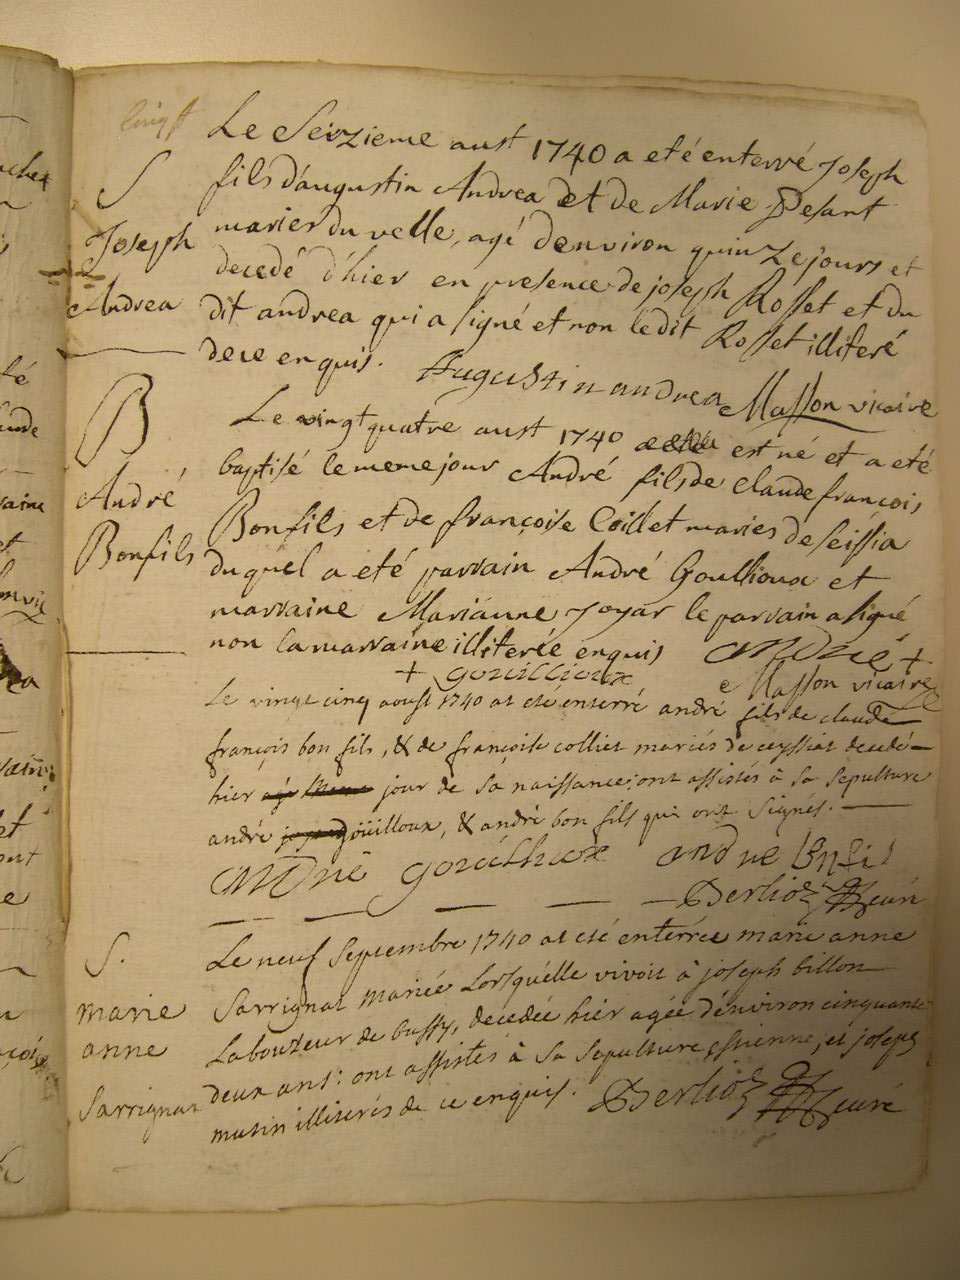 S
Joseph
Andrea
Le Seizieme aust 1740 a eté enterré Joseph
fils d'augustin Andrea et de Marie Pesant
maries du velle, agé d'environ quinze jours et
decedé d'hier en presence de joseph Rosset et du
dit andrea qui a signé et non ledit Rosset illiteré
de ce enquis. Augustin andrea Masson vicaire
B
André
Bonfils
Le vingt quatre aust 1740 est né et a eté
baptisé le meme jour André fils de claude françois
Bonfils et de françoise Coillet maries de seissia
duquel a eté parrain André Goullioux et
marraine Marianne Joyar le parrain a signé
non la marraine illiterée enquis andné +
+ gouillioux e Masson vicaire
Le vingt cinq aoust 1740 at eté enterré andré fils de claude
françois bon fils, & de françoise colliet mariés de ceyssiat decedé
hier jour de sa naissance: ont assistés à sa sepulture
andré goüilloux, & andré bon fils qui ont signés.
andné gouilliux andne bnfil
Berlioz curé
S.
marie
anne
Sarrignat
Le neuf Septembre 1740 at eté enterrée marie anne
Sarrignat mariée Lorsqu'elle vivoit à joseph billon
Laboureur de bussy, decedée hier agée d'environ cinquante
deux ans: ont assistés à sa sepulture, estienne, et joseph
mutin illiterés de ce enquis. Berlioz curé